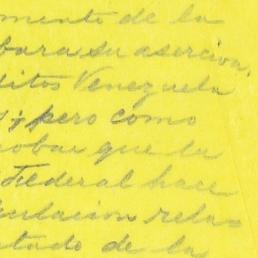 mento de la
bara su asercion.
ditos Venezuela
s; pero como
robar que la
Federal hace
culacion rela-
tado de la